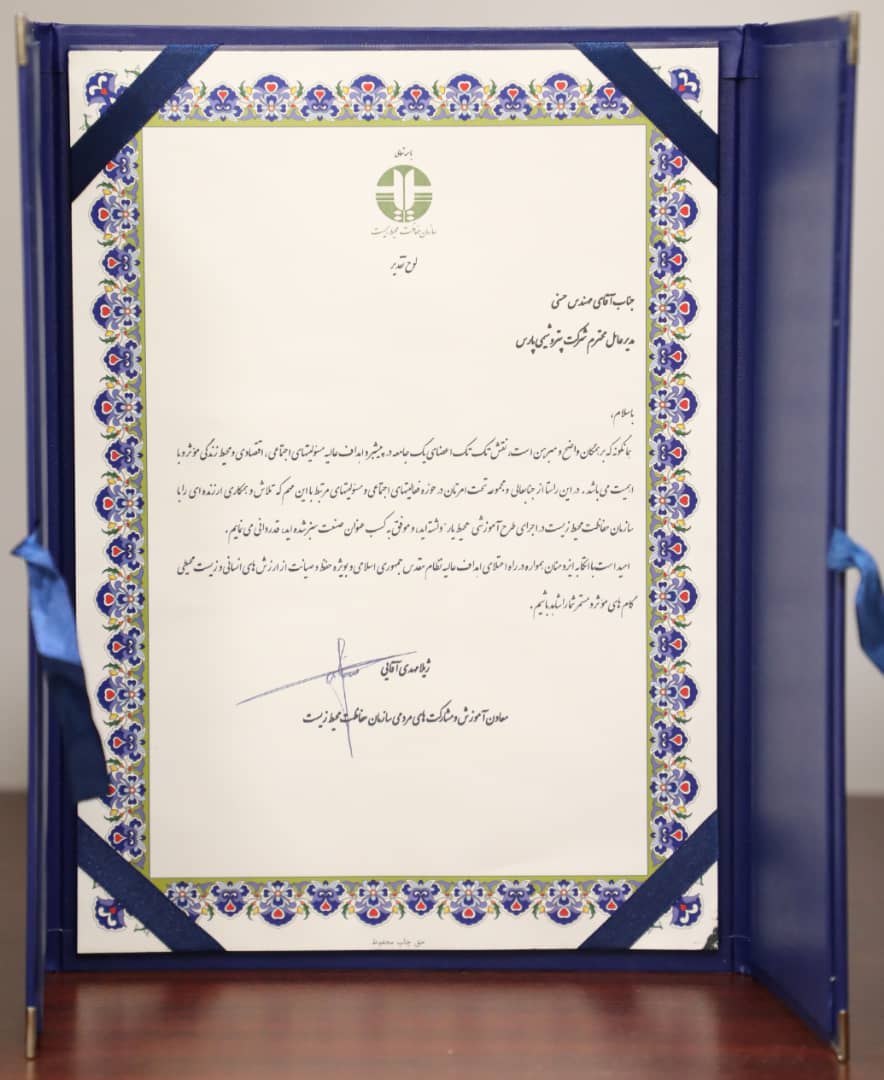 باسمه تعالی
سازمان حفاظت محیط زیست
لوح تقدیر
جناب آقای مهندس حسنی
مدیر عامل محترم شرکت پتروشیمی پارس
با سلام،
همانگونه که بر همگان واضح و مبرهن است، نقش تک تک اعضای یک جامعه در پیشبرد اهداف عالیه مسئولیتهای اجتماعی، اقتصادی و محیط زندگی موثر و با
اهمیت می باشد. در این راستا از جنابعالی و مجموعه تحت امرتان در حوزه فعالیتهای اجتماعی و مسئولیتهای مرتبط با این مهم که تلاش و همکاری ارزنده ای را با
سازمان حفاظت محیط زیست در اجرای طرح آموزشی "محیط یار" داشته اید، و موفق به کسب عنوان صنعت سبز شده اید، قدردانی می نمایم.
امید است با اتکا به ایزد منان همواره در راه اعتلای اهداف عالیه نظام مقدس جمهوری اسلامی و بویژه حفظ و صیانت از ارزش های انسانی و زیست محیطی
گام های موثر و مستمر شما را شاهد باشیم.
ژیلا مهدی آقائی
معاون آموزش و مشارکت های مردمی سازمان حفاظت محیط زیست
حق چاپ محفوظ